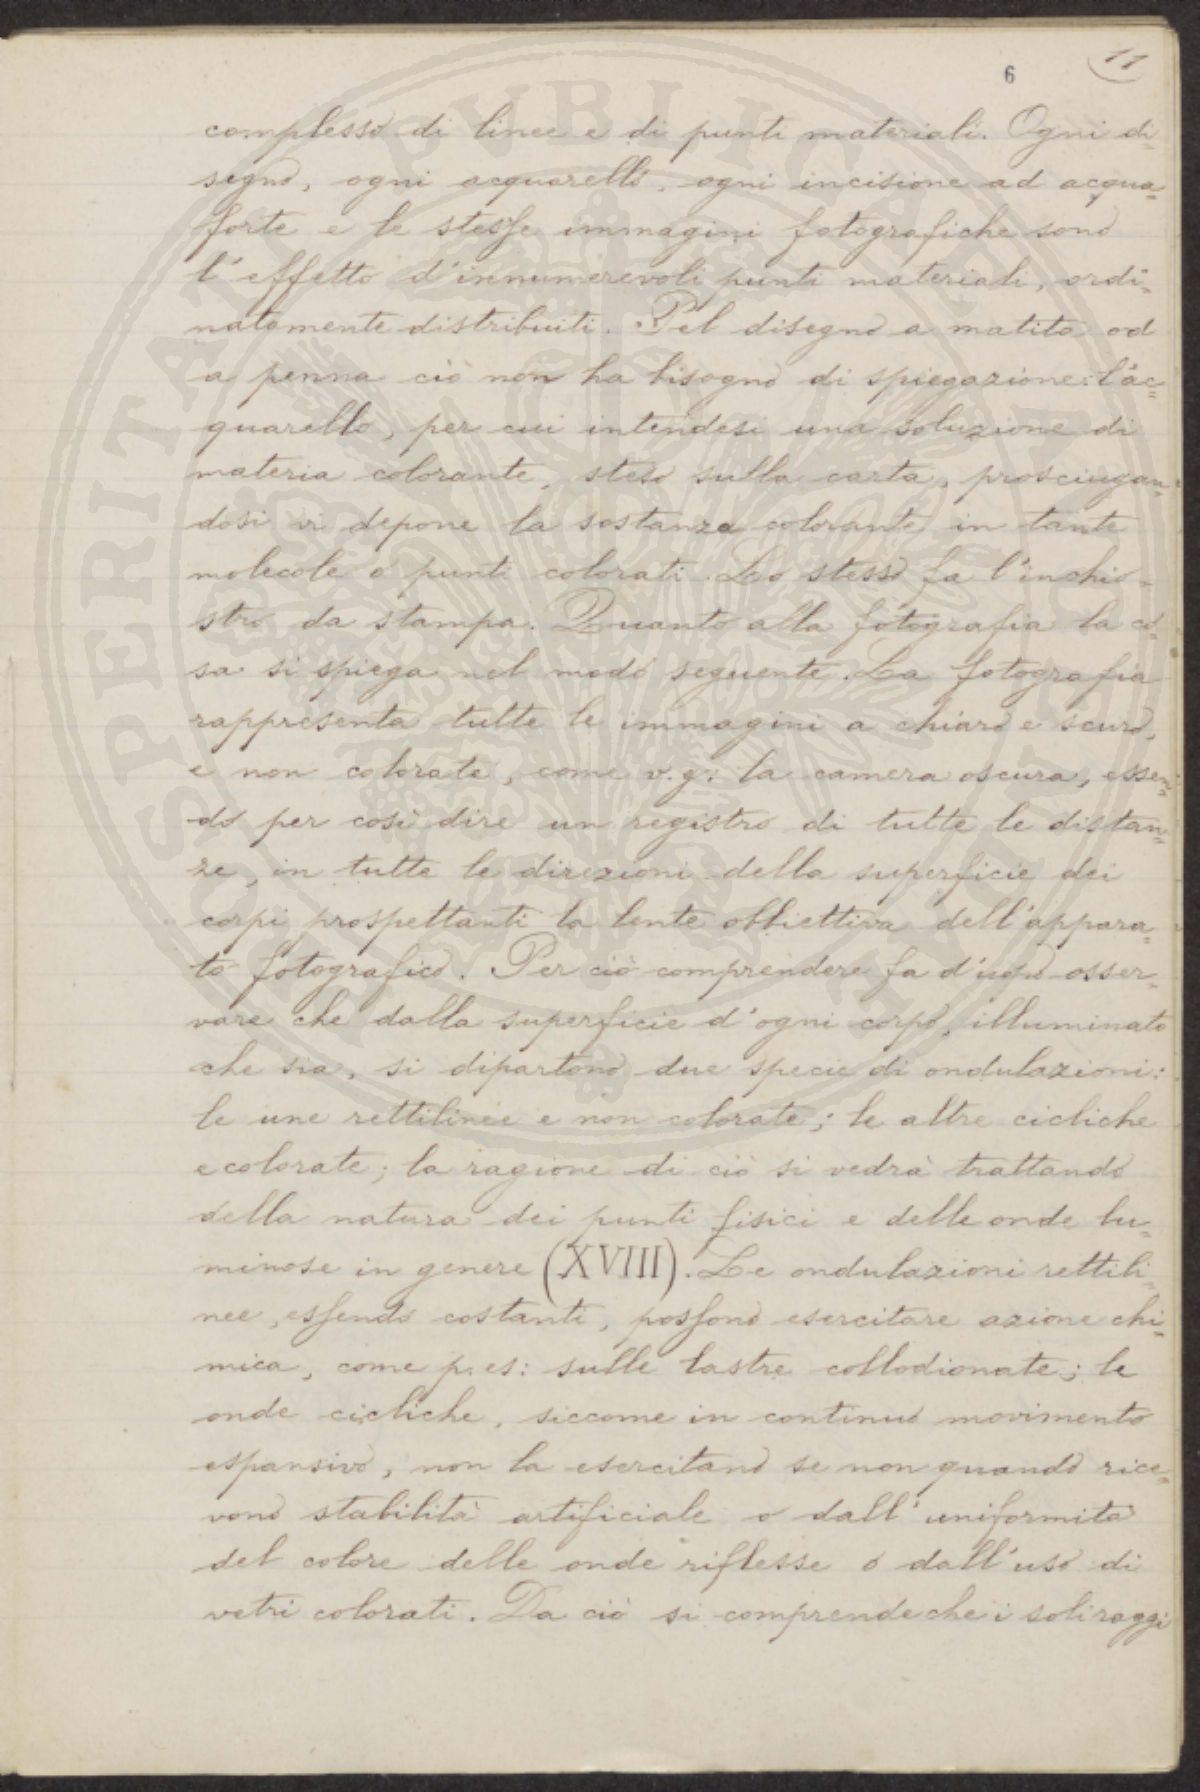 11
6
complesso di linee e di punti materiali. Ogni di=
segno, ogni acquarello, ogni incisione ad acqua=
forte e le stesse immagini fotografiche sono
l'effetto d'innumerevoli punti materiali, ordi=
natamente distribuiti. Pel disegno a matita od
a penna ciò non ha bisogno di spiegazione: l'ac=
quarello, per cui intendesi una soluzione di
materia colorante, steso sulla carta, prosciugan=
dosi vi depone la sostanza colorante in tante
molecole o punti colorati. Lo stesso fa l'inchio=
stro da stampa. Quanto alla fotografia la co=
sa si spiega nel modo seguente. La fotografia
rappresenta tutte le immagini a chiaro e scuro,
e non colorate, come v.g: la camera oscura, essen=
do per così dire un registro di tutte le distan=
ze, in tutte le direzioni della superficie dei
corpi prospettanti la lente obbiettiva dell'appara=
to fotografico. Per ciò comprendere fa d'uopo osser=
vare che dalla superficie d'ogni corpo, illuminato
che sia, si dipartono due specie di ondulazioni:
le une rettilinee e non colorate; le altre cicliche
e colorate; la ragione di ciò si vedrà trattando
della natura dei punti fisici e delle onde lu=
minose in genere (XVIII). Le ondulazioni rettili=
nee, essendo costanti, possono esercitare azione chi=
mica, come p. es: sulle lastre collodionate; le
onde cicliche, siccome in continuo movimento
espansivo, non la esercitano se non quando rice=
vono stabilità artificiale o dall'uniformità
del colore delle onde riflesse o dall'uso di
vetri colorati. Da ciò si comprende che i soli raggi
PROSPERITATI PVBLICAE